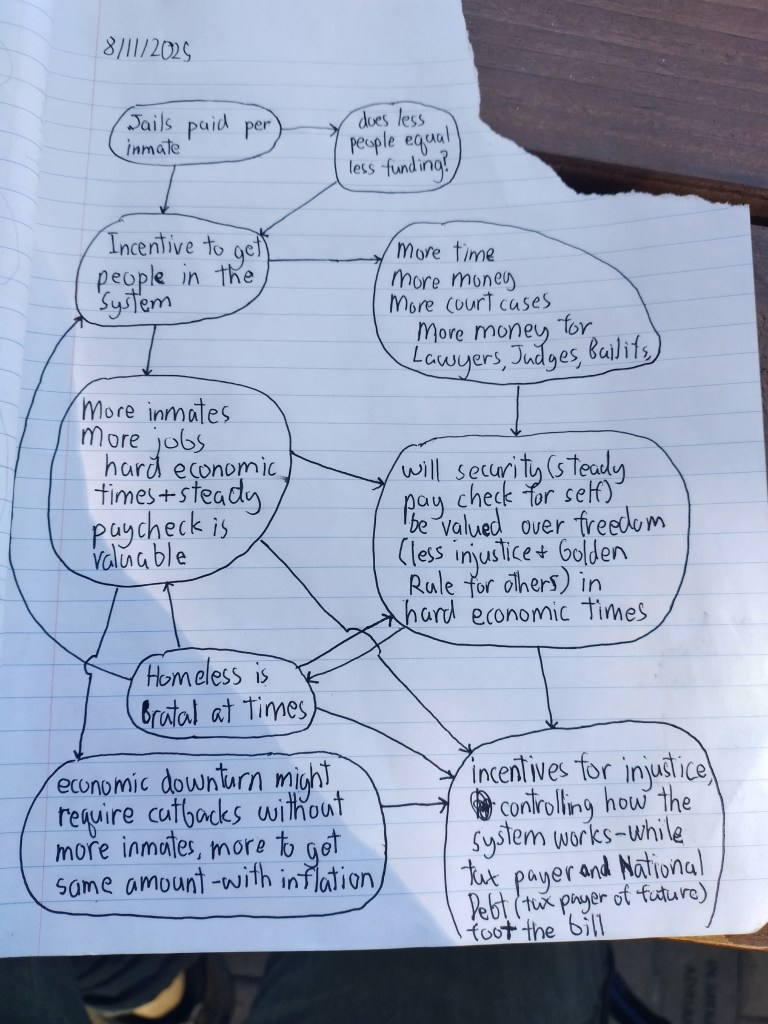 8/11/2025
Jails paid per
inmate
does less
people equal
less funding?
Incentive to get
people in the
System
More time
More money
More court cases
More money for
Lawyers, Judges, Bailifs,
More inmates
More jobs
hard economic
times + steady
paycheck is
valuable
will security (steady
pay check for self)
be valued over freedom
(less injustice + Golden
Rule for others) in
hard economic times
Homeless is
Bratal at times
economic downturn might
require cutbacks without
more inmates, more to get
same amount - with inflation
incentives for injustice,
controlling how the
system works - while
tax payer and National
Debt (tax payer of future)
foot the bill